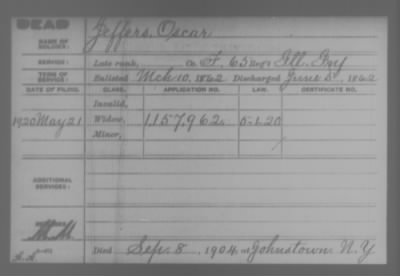 DEAD
NAME OF SOLDIER: Jeffers, Oscar
SERVICE: Late rank, Co. F, 63 Reg't Ill. Inf
TERM OF SERVICE: Enlisted Mch 10, 1862 Discharged June 5, 1862
DATE OF FILING. CLASS. APPLICATION NO. LAW. CERTIFICATE NO.
Invalid,
1920 May 21 Widow, 1157,962. 5-1-20
Minor,
ADDITIONAL SERVICES:
Died Sep. 8, 1904, at Johnstown N.Y